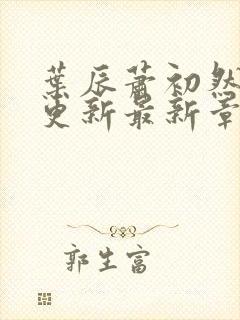 葉辰蕭初然
更新最新章
郭生富